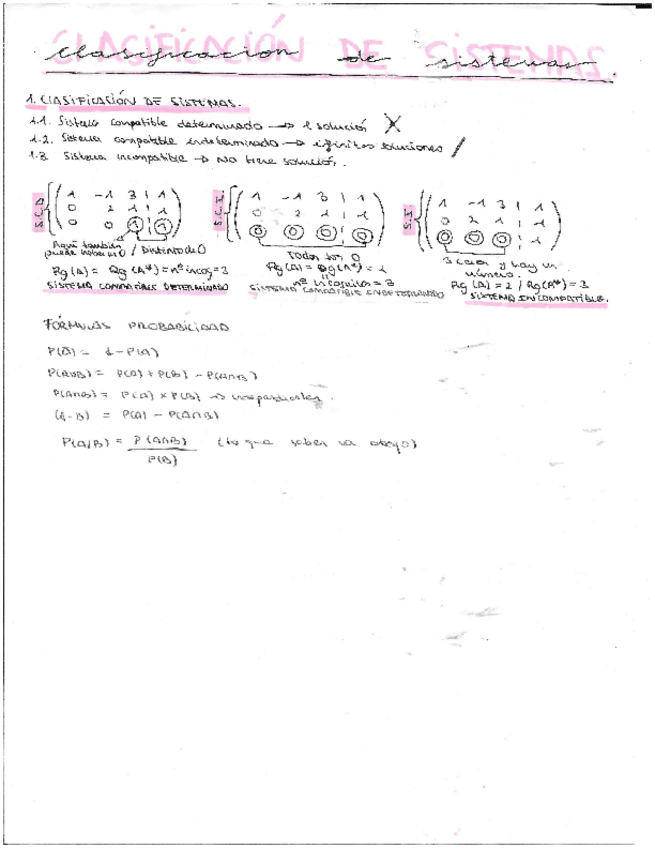 CLASIFICACIÓN DE SISTEMAS
clasificacion de sistemas
1. CLASIFICACIÓN DE SISTEMAS.
1.1. Sistema compatible determinado → 1 solución
1.2. Sistema compatible indeterminado → infinitas soluciones
1.3. Sistema incompatible → No tiene solución.
S.C.D
1 -1 3 | 1
0 2 1 | 1
0 0 1 | 1
Aquí también puede haber un 0 / Distinto de 0
Rg (A) = Rg (A*) = nº incog = 3
SISTEMA COMPATIBLE DETERMINADO
S.C.I.
1 -1 3 | 1
0 2 1 | 1
0 0 0 | 0
Todos son 0
Rg (A) = Rg (A*) = 2
nº incognitas = 3
SISTEMA COMPATIBLE INDETERMINADO
S.I
1 -1 3 | 1
0 2 1 | 1
0 0 0 | 1
3 ceros y hay un
número.
Rg (A) = 2 / Rg (A*) = 3
SISTEMA INCOMPATIBLE.
FÓRMULAS PROBABILIDAD
P(A̅) = 1 - P(A)
P(A∪B) = P(A) + P(B) - P(A∩B)
P(A∩B) = P(A) × P(B) → independientes.
(A-B) = P(A) - P(A∩B)
P(A/B) = P(A∩B) / P(B) (lo que saben va abajo)